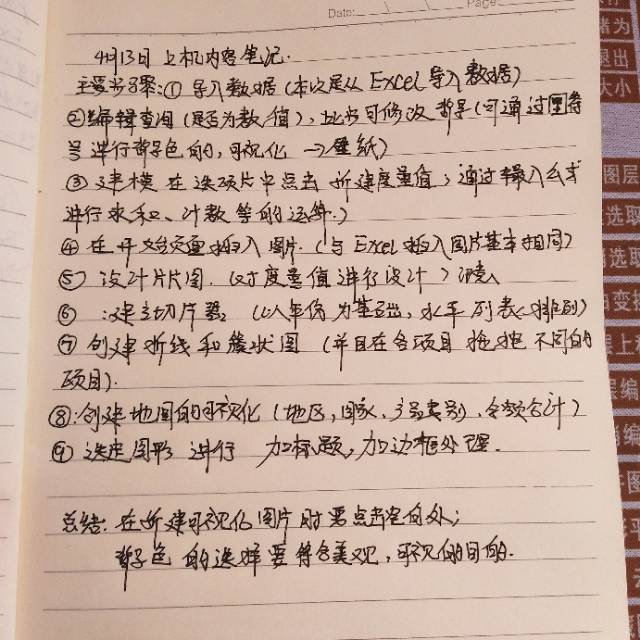 Date:
Page:
4月13日 上机内容笔记.
主要步骤:① 导入数据(本次是从 Excel 导入数据)
②编辑查询(是否为数值),此步可修改背景(可通过图
等进行背景色的,可视化 →壁纸)
③ 建模 在选项片中点击 新建度量值;通过输入公式
进行求和、计数等的运算.)
④ 在开始页面插入图片.(与 Excel 插入图片基本相同)
⑤ 设计卡片图. (对度量值进行设计)
⑥ :建立切片器 (以年份为基础,水平列表排列)
⑦ 创建折线和簇状图 (并且在各项目拖拽不同的
项目).
⑧:创建地图的可视化(地区,国家,产品类别,金额合计)
⑨ 选定图形 进行 加标题,加边框处理.
总结: 在新建可视化图片时要点击空白处;
背景色的选择要符合美观,可视化的目的.
储为
退出
大小
图层
选取
选取
变换
层上移
层编
编
图
平